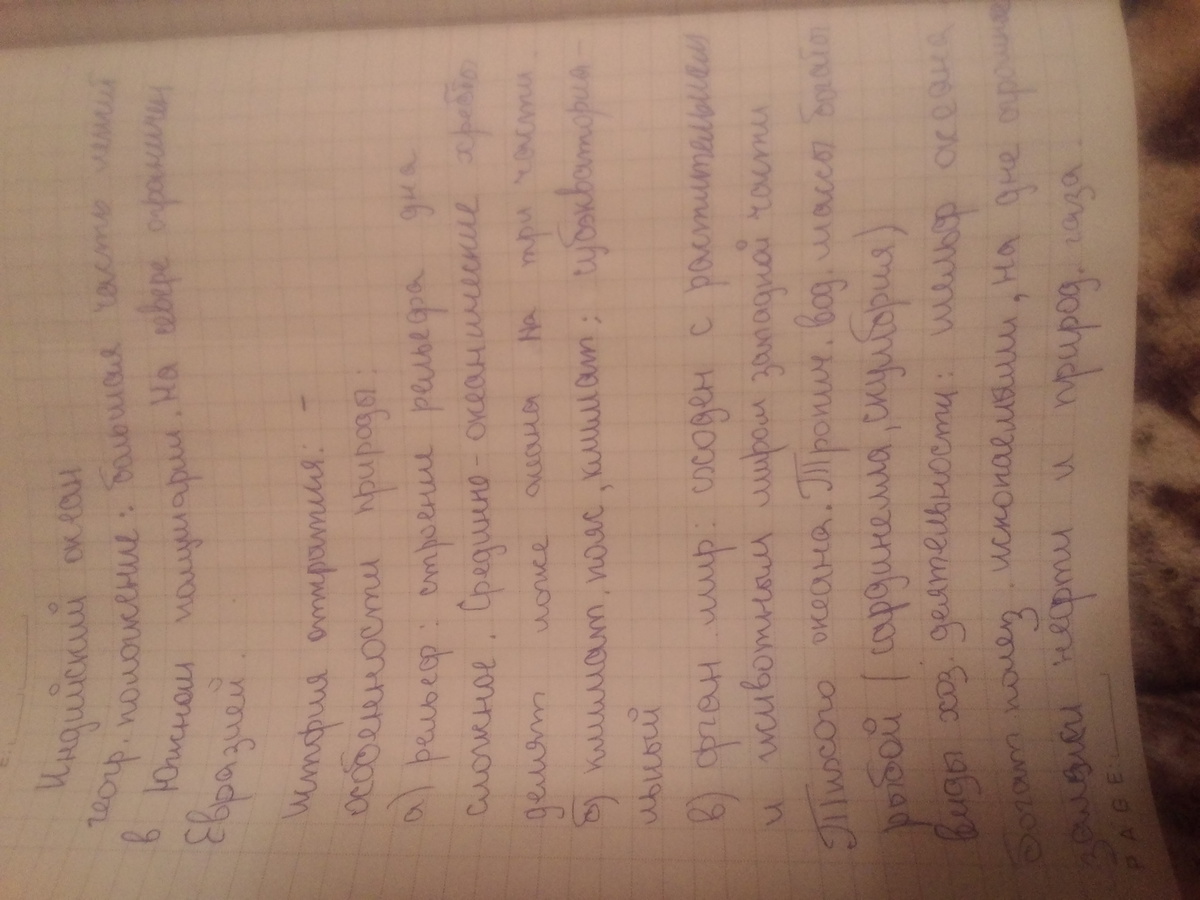 Индийский океан
геогр. положение: большая часть лежит
в Южном полушарии. На севере ограничен
Евразией.
История открытия: -
особенности природы:
а) рельеф: строение рельефа дна
сложное. Срединно-океанические хребты
делят ложе океана на три части.
б) климат. пояс, климат: субэкватория-
льный
в) орган. мир: сходен с растительным
и животным миром западной части
Тихого океана. Тропич. вод. массы богаты
рыбой (сардинелла, скумбрия)
виды хоз. деятельности: шельф океана
богат полез. ископаемыми, на дне огромные
залежи нефти и природ. газа.
PAGE: